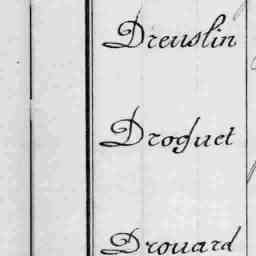 Dreuslin
Droguet
Drouard